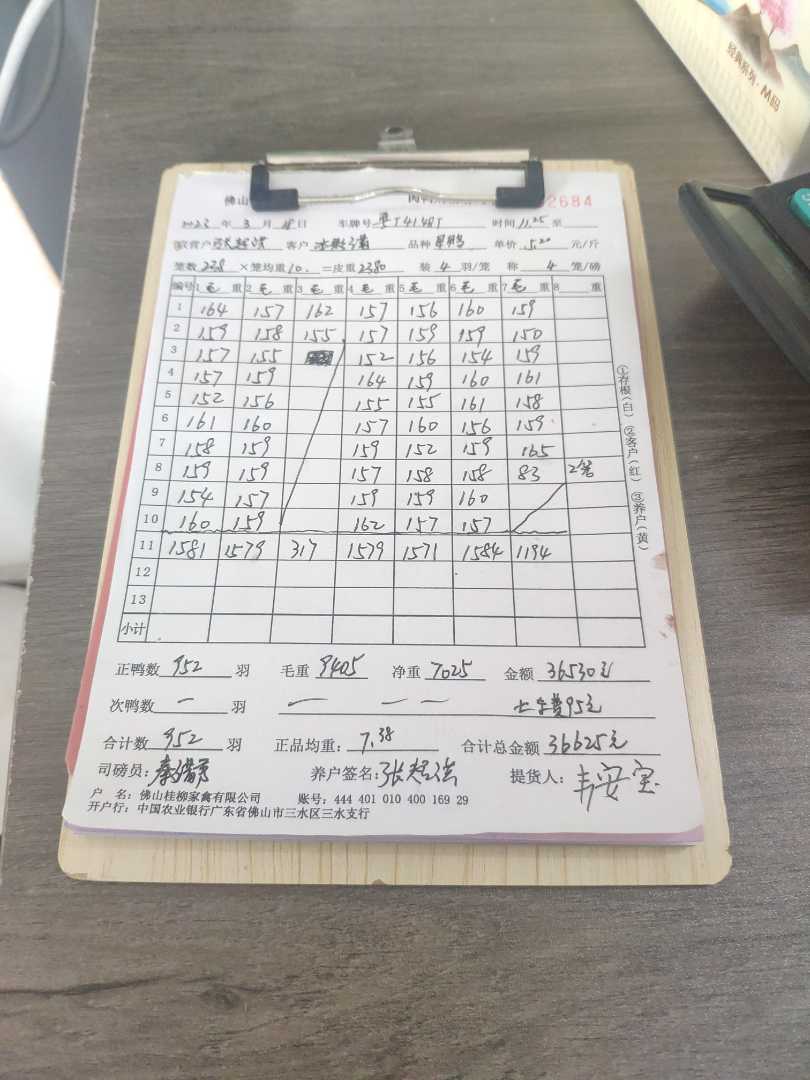 经典系列·M码
佛山 2684
2023 年 3 月 18 日 车牌号 时间 11.25 至
客户 品种 单价 5.20 元/斤
笼数 238 ×笼均重 10. =皮重 2380 装 4 羽/笼 称 4 笼/磅
编号 1 毛 重 2 毛 重 3 毛 重 4 毛 重 5 毛 重 6 毛 重 7 毛 重 8 重
1 164 157 162 157 156 160 159
2 159 158 155 157 159 159 150
3 157 155 152 156 154 159
4 157 159 164 159 160 161
5 152 156 155 155 161 158
6 161 160 157 160 156 159
7 158 159 159 152 159 165
8 159 159 157 158 158 83 2笼
9 154 157 159 159 160
10 160 159 162 157 157
11 1581 1579 317 1579 1571 1584 1194
12
13
小计
①存根(白) ②客户(红) ③养户(黄)
正鸭数 952 羽 毛重 9405 净重 7025 金额 36530元
次鸭数 一 羽 一 一 一 95元
合计数 952 羽 正品均重: 7.38 合计总金额 36625元
司磅员: 养户签名: 张超洪 提货人: 安宝
户 名: 佛山桂柳家禽有限公司 账号: 444 401 010 400 169 29
开户行: 中国农业银行广东省佛山市三水区三水支行